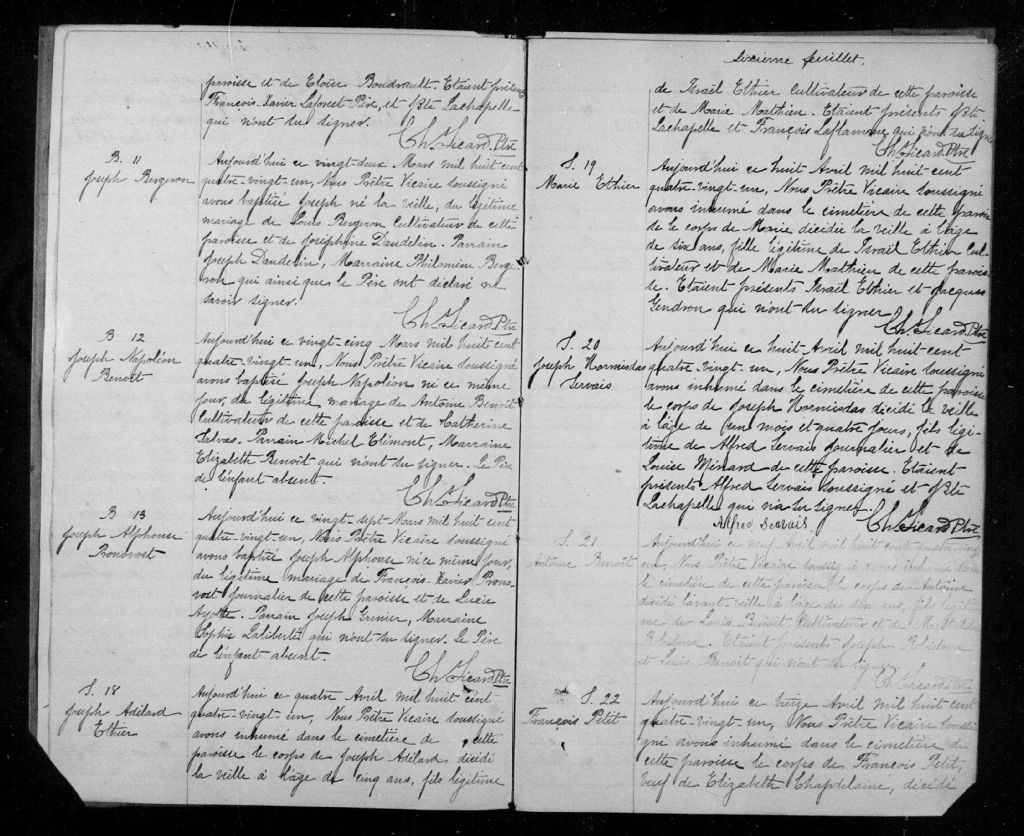 paroisse et de Eloïse Boudrault. Etaient présents
François-Xavier Lafosset Père, et Bte Lachapelle
qui n'ont su signer.
Chs Sicard Ptre
B. 11
Joseph Bergeron
Aujourd'hui ce vingt-deux Mars mil huit cent
quatre-vingt-un, Nous Prêtre Vicaire soussigné
avons baptisé Joseph né la veille, du légitime
mariage de Louis Bergeron Cultivateur de cette
paroisse et de Joséphine Daudelin. Parrain
Joseph Daudelin, Marraine Philomène Berge-
ron qui ainsi que le Père ont déclaré ne
savoir signer.
Chs Sicard Ptre
B 12
Joseph Napoléon
Benoît
Aujourd'hui ce vingt-cinq Mars mil huit cent
quatre-vingt-un, Nous Prêtre Vicaire soussigné
avons baptisé Joseph Napoléon né ce même
jour, du légitime mariage de Antoine Benoît
Cultivateur de cette paroisse et de Catherine
Salvas. Parrain Michel Etémont, Marraine
Elizabeth Benoît qui n'ont su signer. Le Père
de l'enfant absent.
Chs Sicard Ptre
B 13
Joseph Alphonse
Aujourd'hui ce vingt-sept Mars mil huit cent
quatre-vingt-un, Nous Prêtre Vicaire soussigné
avons baptisé Joseph Alphonse né ce même jour,
du légitime mariage de François-Xavier Prono-
vost journalier de cette paroisse et de Lucie
Ayotte. Parrain Joseph Grenier, Marraine
Sophie Laliberté qui n'ont su signer. Le Père
de l'enfant absent.
Chs Sicard Ptre
S. 18
Joseph Adélard
Ethier
Aujourd'hui ce quatre Avril mil huit cent
quatre-vingt-un, Nous Prêtre Vicaire soussigné
avons inhumé dans le cimetière de cette
paroisse le corps de Joseph Adélard, décédé
la veille à l'âge de cinq ans, fils légitime
feuillet.
de Israël Ethier Cultivateur de cette paroisse
et de Marie Matthieu. Etaient présents Bte
Lachapelle et François Laflamme qui n'ont su signer
Chs Sicard Ptre
S. 19
Marie Ethier
Aujourd'hui ce huit Avril mil huit cent
quatre-vingt-un, Nous Prêtre Vicaire soussigné
avons inhumé dans le cimetière de cette parois-
se le corps de Marie décédée la veille à l'âge
de six ans, fille légitime de Israël Ethier Cul-
tivateur et de Marie Matthieu de cette parois-
se. Etaient présents Israël Ethier et Jacques
Gendron qui n'ont su signer
Chs Sicard Ptre
S. 20
Joseph Hormisdas
Servais
Aujourd'hui ce huit Avril mil huit cent
quatre-vingt-un, Nous Prêtre Vicaire soussigné
avons inhumé dans le cimetière de cette paroisse
le corps de Joseph Hormisdas décédé la veille
à l'âge de un mois et quatre jours, fils légi-
time de Alfred Servais journalier et de
Louise Ménard de cette paroisse. Etaient
présents Alfred Servais soussigné et Bte
Lachapelle qui n'a su signer.
Alfred Servais
Chs Sicard Ptre
S. 21
Antoine Benoît
Aujourd'hui ce neuf Avril mil huit cent quatre-vingt
un, Nous Prêtre Vicaire soussigné avons inhumé dans
le cimetière de cette paroisse le corps de Antoine
décédé l'avant-veille à l'âge de ans, fils légiti-
me de Louis Benoît Cultivateur et de
Robidoux. Etaient présents Joseph Robidoux
et Louis Benoît qui n'ont su signer.
Chs Sicard Ptre
S. 22
François Petit
Aujourd'hui ce Avril mil huit cent
quatre-vingt-un, Nous Prêtre Vicaire soussi-
gné avons inhumé dans le cimetière de
cette paroisse le corps de François Petit
veuf de Elizabeth Chapdelaine, décédé